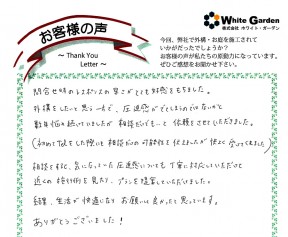 お客様の声
～ Thank You
Letter ～
White Garden
株式会社 ホワイト・ガーデン
今回、弊社で外構・お庭を施工されて
いかがだったでしょうか？
お客様の声が私たちの原動力になっています。
ぜひご感想をお聞かせ下さい。
問合せ時のレスポンスの早さがとても好感をもちました。
外構をしたいと思う一方で、圧迫感がでてしまうのではないかと
数年悩み続けていましたが 相談だけでもと 依頼をさせていただきました。
相談をすると、気になっていた圧迫感についても丁寧に対応していただいて
近くの施行例を見たり、プランを提案していただきました。
結果、生活が快適になり お願いして良かったと思っています。
ありがとうございました！